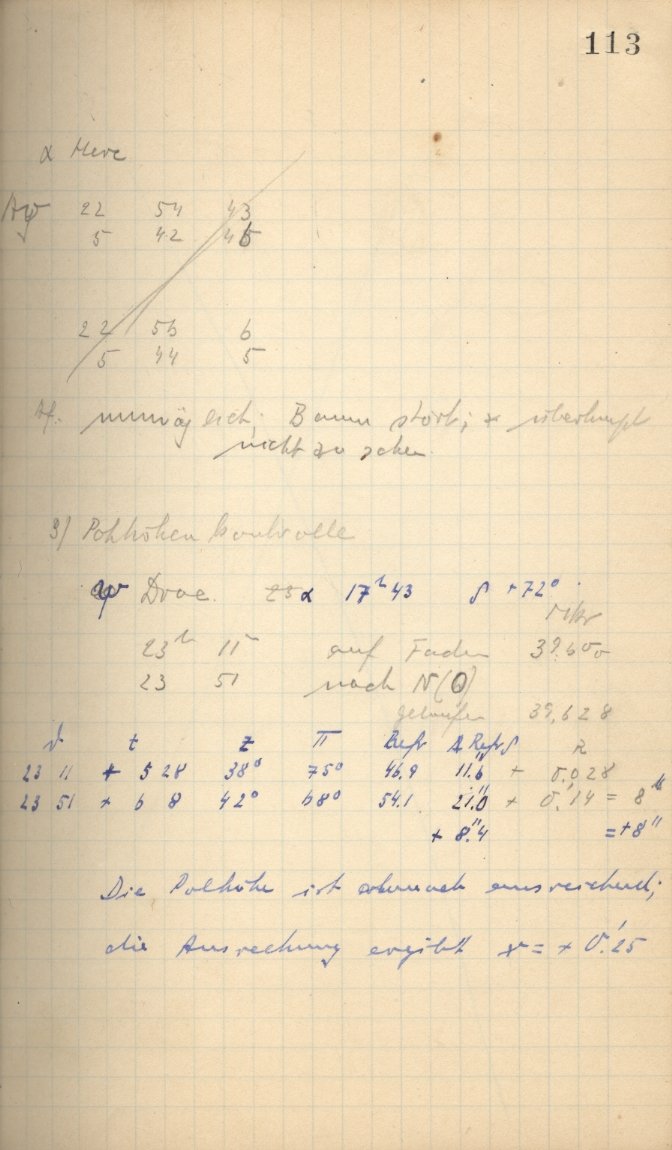 113
α Herc
22 54 43
5 42 45
22 56 6
5 44 5
unmöglich; Baum stört; * überhaupt
nicht zu sehen.
3) Polhöhenkontrolle
ψ Drac. α 17h 43 δ +72°
23h 11m auf Faden 39.600
23 51 nach N(O)
gelaufen 39,628
t z π Refr Δ Refr R
23 11 + 5 28 38° 75° 46.9 11.6 + 0.028
23 51 + 6 8 42° 68° 54.1 21.0 + 0.'14 = 8"
+ 8."4 = +8"
Die Polhöhe ist demnach ausreichend;
die Ausrechnung ergibt x = + 0.'25